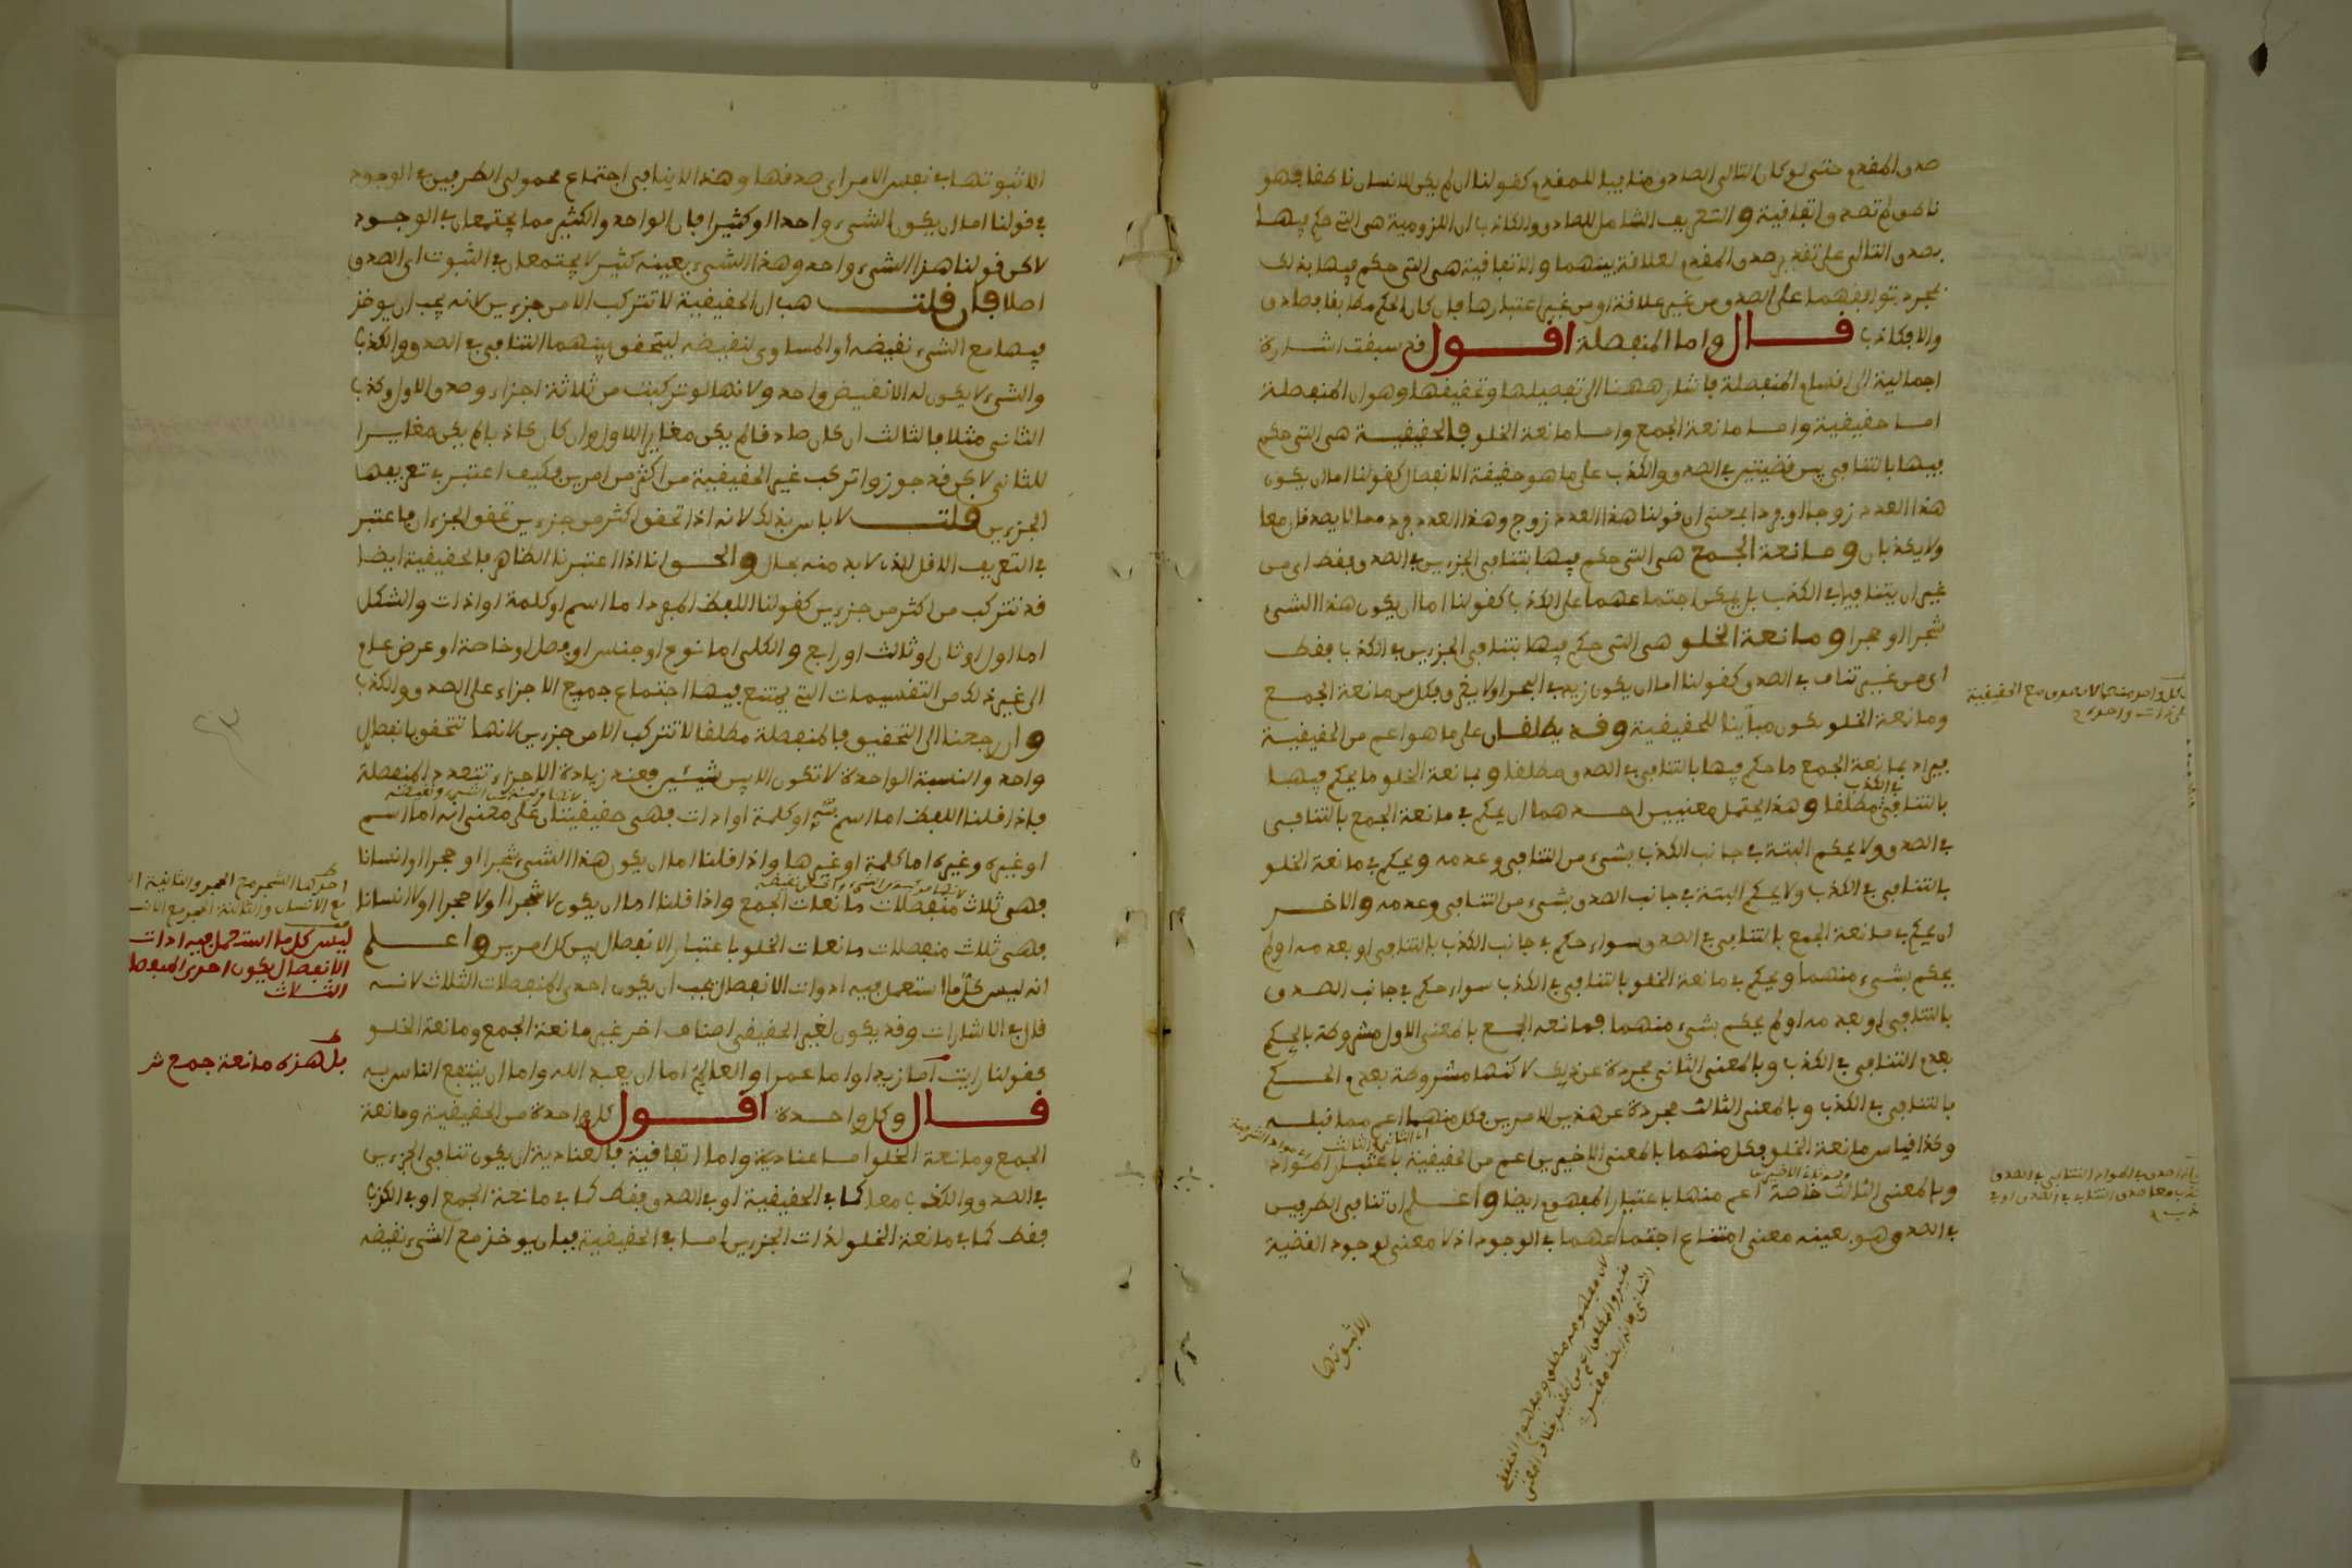 صدق المقدم حتى لو كان التالي الصادق منافيا للمقدم كقولنا ان لم يكن الانسان ناطقا فهو
ناطق لم تصدق اتفاقية والتعريف الشامل للصادق والكاذب ان اللزومية هي التي حكم فيها
بصدق التالي على تقدير صدق المقدم لعلاقة بينهما والاتفاقية هي التي حكم فيها بذلك
لمجرد توافقهما على الصدق من غير علاقة او من غير اعتبارها فان كان الحكم مطابقا فصادق
والا فكاذب قال واما المنفصلة اقول قد سبقت اشارة
اجمالية الى اقسام المنفصلة فاشار ههنا الى تفصيلها وتحقيقها وهو ان المنفصلة
اما حقيقية واما مانعة الجمع واما مانعة الخلو فالحقيقية هي التي حكم
فيها بالتنافي بين قضيتين في الصدق والكذب على ما هو حقيقة الانفصال كقولنا اما ان يكون
هذا العدد زوجا او فردا بمعنى ان قولنا هذا العدد زوج وهذا العدد فرد مما لا يصدقان معا
ولا يكذبان ومانعة الجمع هي التي حكم فيها بتنافي الجزءين في الصدق فقط اي من
غير ان يتنافيا في الكذب بل يمكن اجتماعهما على الكذب كقولنا اما ان يكون هذا الشيء
شجرا او حجرا ومانعة الخلو هي التي حكم فيها بتنافي الجزءين في الكذب فقط
اي من غير تناف في الصدق كقولنا اما ان يكون زيد في البحر او لا يغرق فكل من مانعة الجمع
ومانعة الخلو يكون مباينا للحقيقية وقد يطلقان على ما هو اعم من الحقيقية
فيراد بمانعة الجمع ما حكم فيها بالتنافي في الصدق مطلقا وبمانعة الخلو ما يحكم فيها
في الكذب
بالتنافي مطلقا وهذا يحتمل معنيين احدهما ان يحكم في مانعة الجمع بالتنافي
في الصدق ولا يحكم البتة في جانب الكذب بشيء من التنافي وعدمه ويحكم في مانعة الخلو
بالتنافي في الكذب ولا يحكم البتة في جانب الصدق بشيء من التنافي وعدمه والاخر
ان يحكم في مانعة الجمع بالتنافي في الصدق سواء حكم في جانب الكذب بالتنافي او بعدمه او لم
يحكم بشيء منهما ويحكم في مانعة الخلو بالتنافي في الكذب سواء حكم في جانب الصدق
بالتنافي او بعدمه او لم يحكم بشيء منهما فمانعة الجمع بالمعنى الاول مشروطة بالحكم
بعدم التنافي في الكذب وبالمعنى الثاني مجردة عن ذلك لاكنها مشروطة بعدم الحكم
بالتنافي في الكذب وبالمعنى الثالث مجردة عن هذين الامرين فكل منهما اعم مما قبله
وكذا قياس مانعة الخلو فكل منهما بالمعنى الاخيرين اعم من الحقيقية باعتبار المواد
وبالمعنى الثالث خاصة اعم منها باعتبار المفهوم ايضا واعلم ان تنافي الطرفين
في الصدق هو بعينه معنى امتناع اجتماعهما في الوجود اذ لا معنى لوجود القضية
الا ثبوتها
الا ثبوتها في نفس الامر اي صدقها وهذا لا ينافي اجتماع محمولي الطرفين في الوجود
في قولنا اما ان يكون الشيء واحدا او كثيرا فان الواحد والكثير مما يجتمعان في الوجود
لاكن قولنا هذا الشيء واحد وهذا الشيء بعينه كثير لا يجتمعان في الثبوت اي الصدق
اصلا فان قلت هب ان الحقيقية لا تتركب الا من جزءين لانه يجب ان يوخذ
فيها مع الشيء نقيضه او المساوي لنقيضه ليتحقق بينهما التنافي في الصدق والكذب
والشيء لا يكون له الا نقيض واحد ولانها لو تركبت من ثلاثة اجزاء وصدق الاول وكذب
الثاني مثلا فالثالث ان كان صادقا لم يكن مغايرا للاول وان كان كاذبا لم يكن مغايرا
للثاني لاكن قد جوزوا تركب غير الحقيقية من اكثر من امرين فكيف اعتبر في تعريفها
الجزءين قلت لا باس بذلك لانه اذا تحقق اكثر من جزءين تحقق الجزءان فاعتبر
في التعريف الاقل الذي لا بد منه بحال والحق انا اذا اعتبرنا الظاهر فالحقيقية ايضا
قد تتركب من اكثر من جزءين كقولنا اللفظ المفرد اما اسم او كلمة او ادات والشكل
اما اول او ثان او ثالث او رابع والكلي اما نوع او جنس او فصل او خاصة او عرض عام
الى غير ذلك من التقسيمات التي يمتنع فيها اجتماع جميع الاجزاء على الصدق والكذب
وان رجعنا الى التحقيق فالمنفصلة مطلقا لا تتركب الا من جزءين لانها تتحقق بانفصال
واحد والنسبة الواحدة لا تكون الا بين شيئين فعند زيادة الاجزاء تتعدد المنفصلة
فاذا قلنا اللفظ اما اسم او كلمة او ادات فهي حقيقيتان على معنى انه اما اسم
او غيره وغيره اما كلمة او غيرها واذا قلنا اما ان يكون هذا الشيء شجرا او حجرا او انسانا
فهي ثلاث منفصلات مانعات الجمع واذا قلنا اما ان يكون لا شجرا او لا حجرا او لا انسانا
فهي ثلاث منفصلات مانعات الخلو باعتبار الانفصال بين كل امرين واعلم
انه ليس كل ما استعمل فيه ادوات الانفصال يجب ان يكون احدى المنفصلات الثلاث لانه
قال في الاشارات وقد يكون لغير الحقيقي اصناف اخر غير مانعة الجمع ومانعة الخلو
كقولنا رايت اما زيدا واما عمرا والعالم اما ان يعبد الله واما ان ينتفع الناس به
قال وكل واحدة اقول كل واحدة من الحقيقية ومانعة
الجمع ومانعة الخلو اما عنادية واما اتفاقية فالعنادية ان يكون تنافي الجزءين
في الصدق والكذب معا كما في الحقيقية او في الصدق فقط كما في مانعة الجمع او في الكذب
فقط كما في مانعة الخلو لذات الجزءين اما في الحقيقية فبان يوخذ مع الشيء نقيضه
ليس كل ما استعمل فيه ادات
الانفصال يكون احدى المنفصلا
الثلاث
بل هذه مانعة جمع